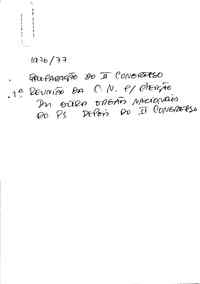 1976/77
PREPARAÇÃO DO II CONGRESSO
. 1ª REUNIÃO DA C. N. P/ ELEIÇÃO
DOS ORGÃOS NACIONAIS
DO PS DEPOIS DO II CONGRESSO